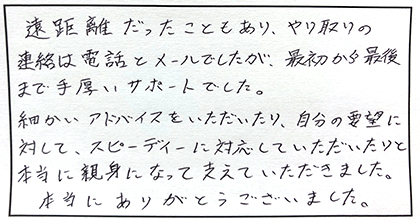 遠距離だったこともあり、やり取りの
連絡は電話とメールでしたが、最初から最後
まで手厚いサポートでした。
細かいアドバイスをいただいたり、自分の要望に
対して、スピーディーに対応していただいたりと
本当に親身になって支えていただきました。
本当にありがとうございました。